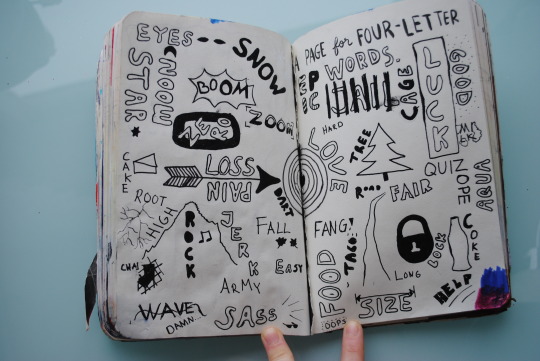 EYES
SNOW
STAR
MOON
BOOM
ZOOM
LOSS
PAIN
CAKE
DART
ROOT
HIGH
ROCK
JERK
FALL
EASY
ARMY
WAVE
DAMN
SASS
A PAGE for FOUR-LETTER
WORDS.
JAIL
CAGE
LUCK
GOOD
HARD
LOVE
TREE
QUIZ
ROAD
FAIR
DOPE
AQUA
FANG!
TACO
FOOD
LONG
LOCK
COKE
HELP
SIZE
OOPS